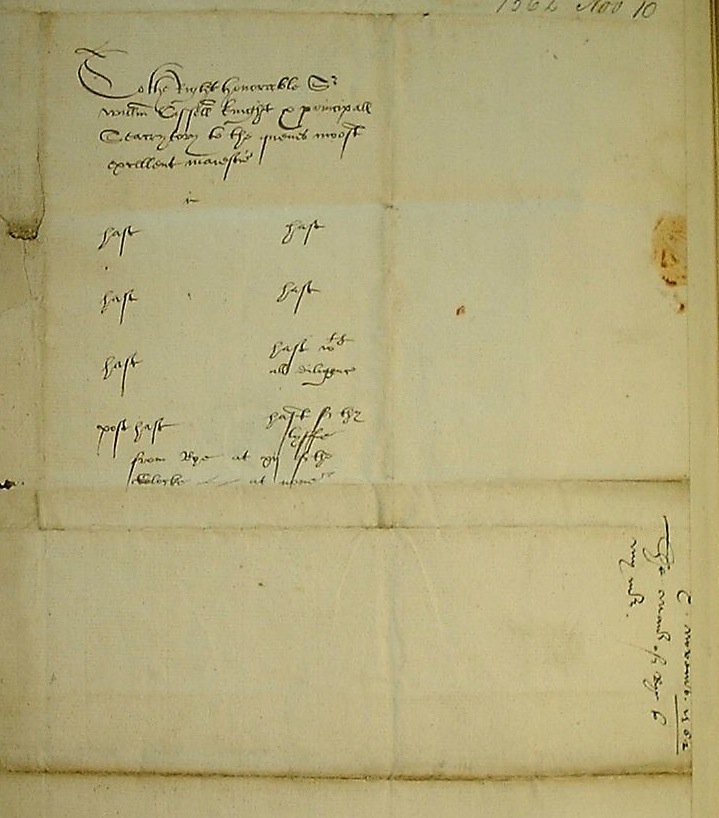 1562 Nov 10
To the Right honorable Sr
Willm Cissell knight & principall
Secrytory to the quenes moost
excellent maiestie
hast hast
hast hast
hast hast wth
all diligence
post hast hast for thy
lyffe
from Rye at xii of the
Clocke at none